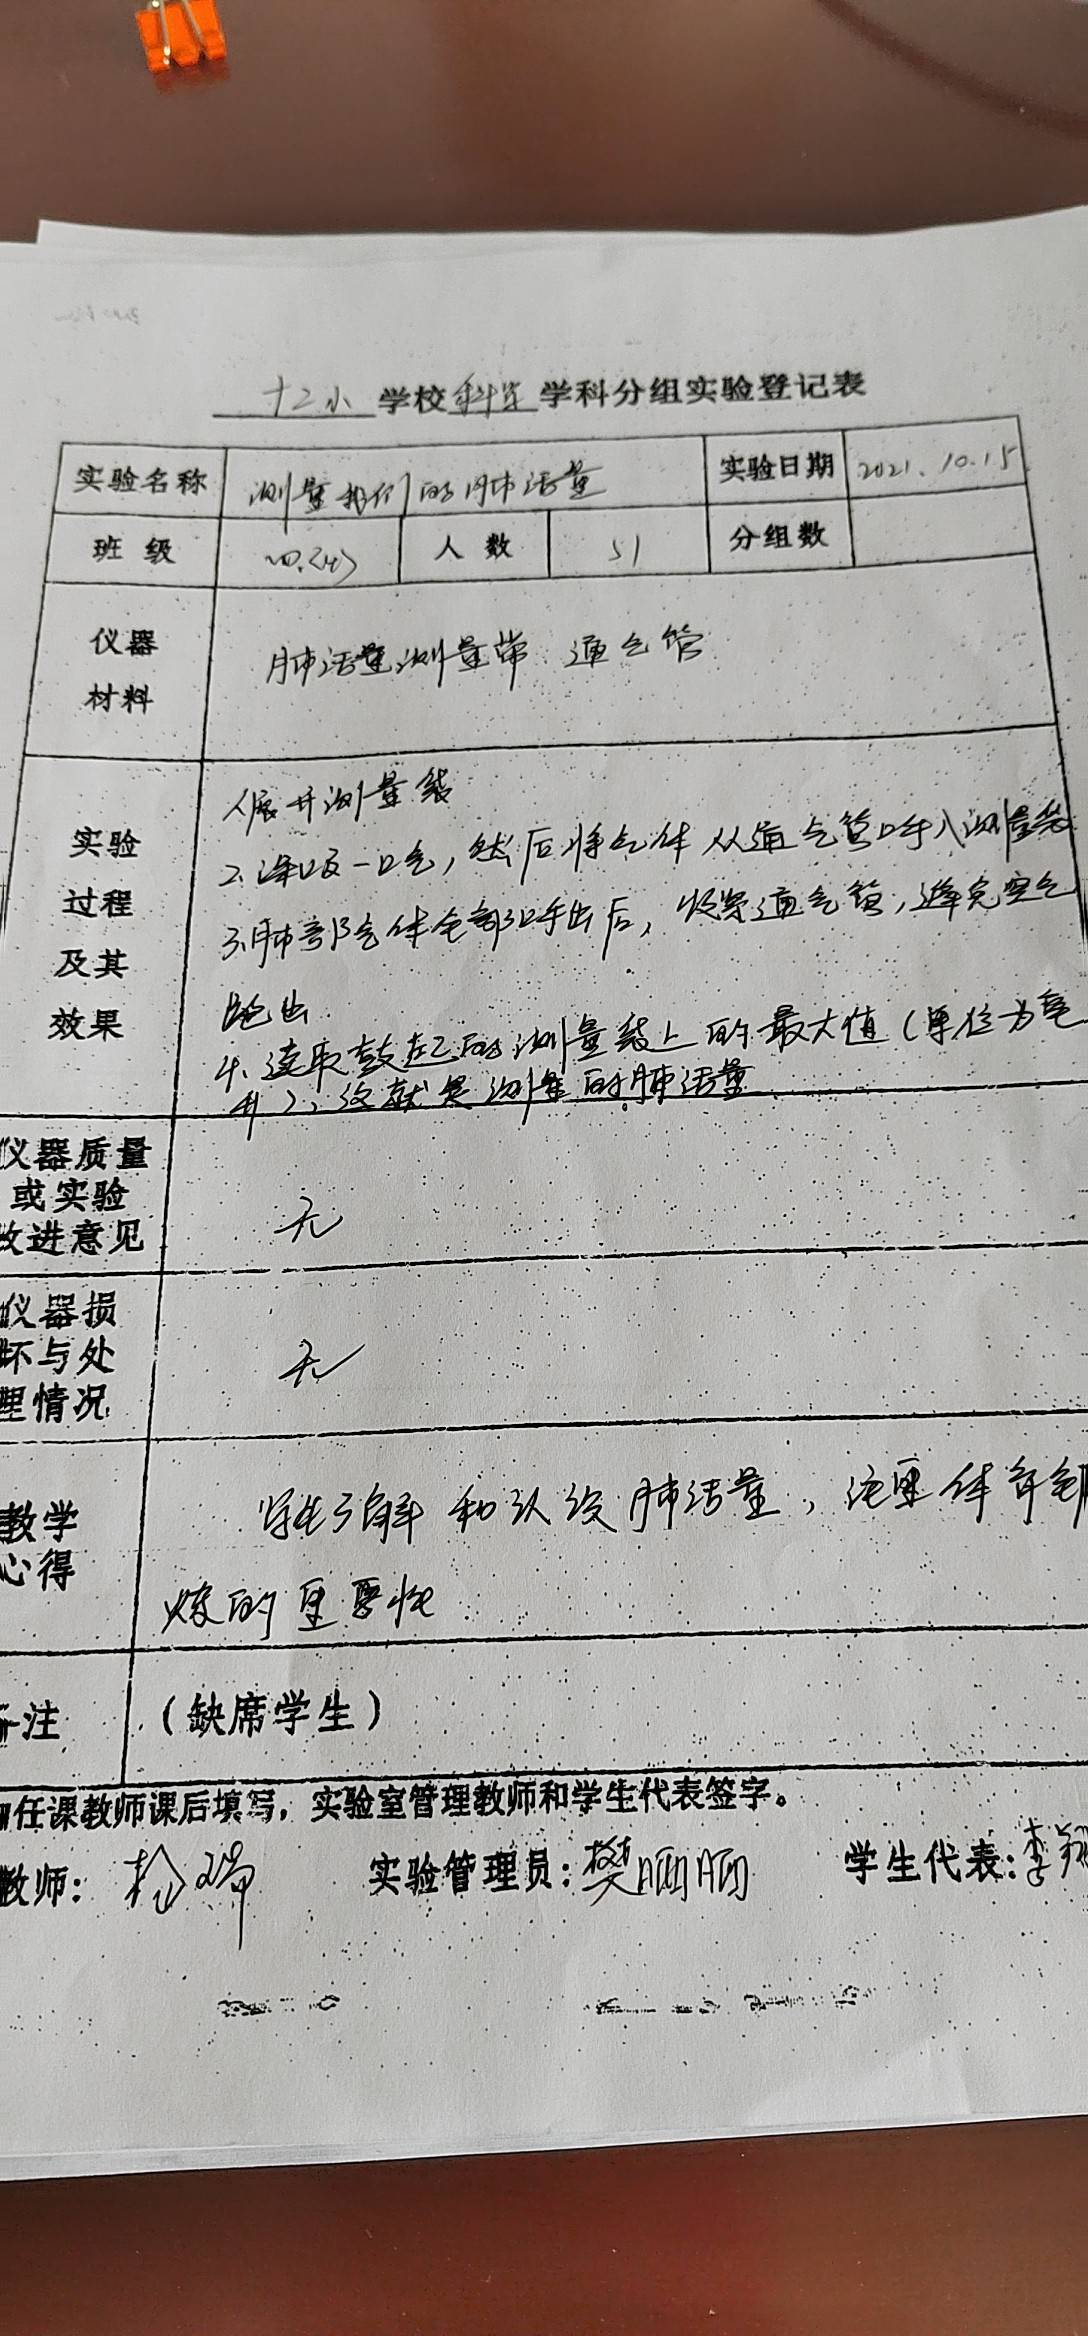 十二小学校科学学科分组实验登记表
实验名称 测量我们的肺活量 实验日期 2021.10.15
班级 四.(4) 人数 51 分组数
仪器
材料
肺活量测量袋 通气管
实验
过程
及其
效果
1.展开测量袋
2.深吸一口气,然后将气体从通气管呼入测量袋
3.肺部气体全部呼出后,收紧通气管,避免空气
跑出
4.读取鼓起的测量袋上的最大值(单位为毫
升),这就是测量的肺活量
仪器质量
或实验
改进意见
无
仪器损
坏与处
理情况
无
教学
心得
学生了解和认识肺活量,注重体育锻
炼的重要性
备注 (缺席学生)
任课教师课后填写,实验室管理教师和学生代表签字。
教师: 杨瑞 实验管理员:樊丽丽 学生代表:李翔